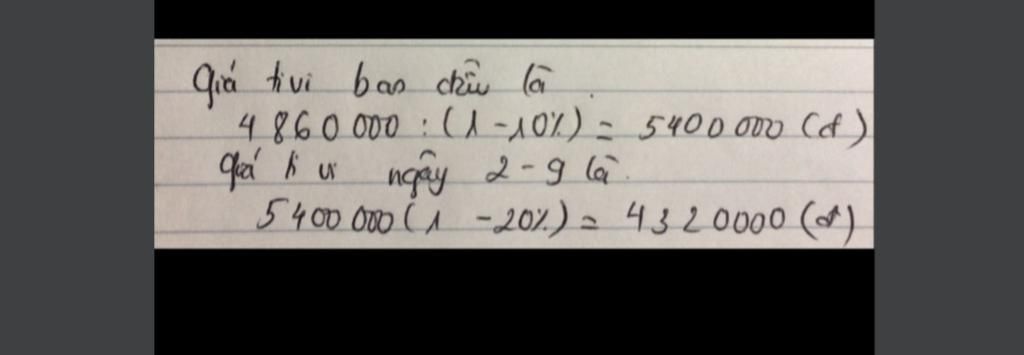 Giá ti vi ban đầu là.
4 860 000 : (1 - 10%) = 5400 000 (đ)
Giá ti vi ngày 2 - 9 là.
5 400 000 (1 - 20%) = 4 3 2 0000 (đ)